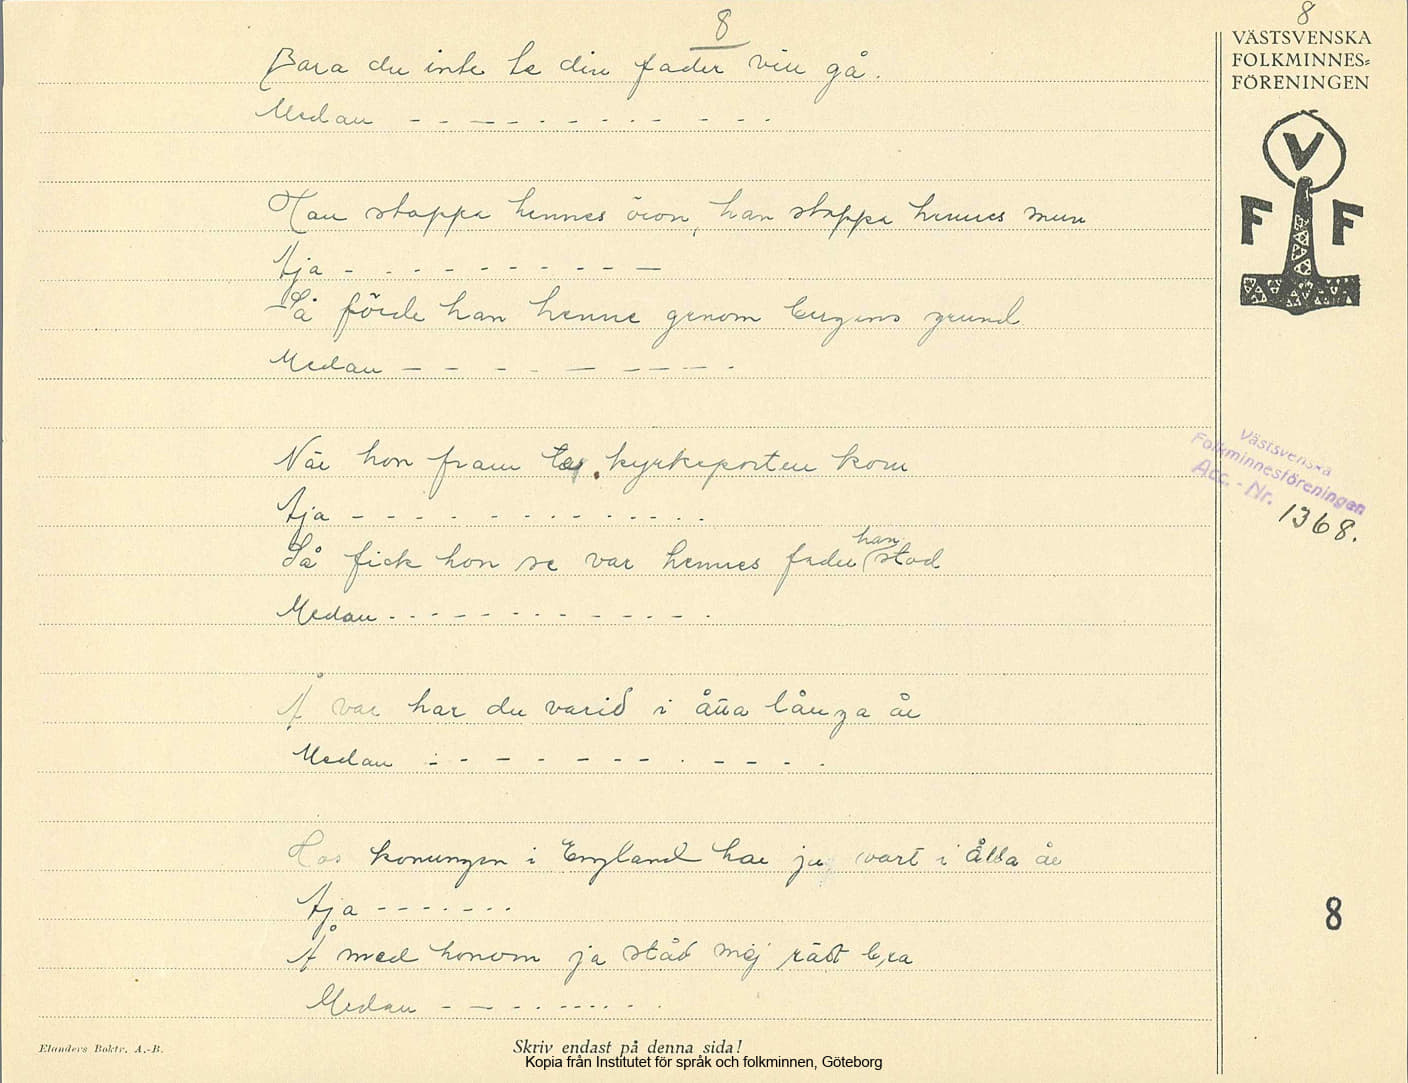 8
8
VÄSTSVENSKA
FOLKMINNES=
FÖRENINGEN
V
F F
Bara du inte te din fader vill gå.
Medan - - - - - - - - - - - -
Han stoppa hennes öron, han stoppa hennes mun
Aja - - - - - - - - - -
Så förde han henne genom bergens grund
Medan - - - - - - - - -
När hon fram till kyrkeporten kom
Aja - - - - - - - - - - - -
Så fick hon se var hennes fader han stod
Medan - - - - - - - - - - - -
Västsvenska
Folkminnesföreningen
Acc. - Nr. 1368.
Å var har du varid i åtta långa år
Medan - - - - - - - - - - - -
Hos konungen i England har ja vart i åtta år
Aja - - - - - - -
Å med honom ja ståd mej rädt bra
Medan - - - - - - - - -
8
Elanders Boktr. A.-B.
Skriv endast på denna sida!
Kopia från Institutet för språk och folkminnen, Göteborg